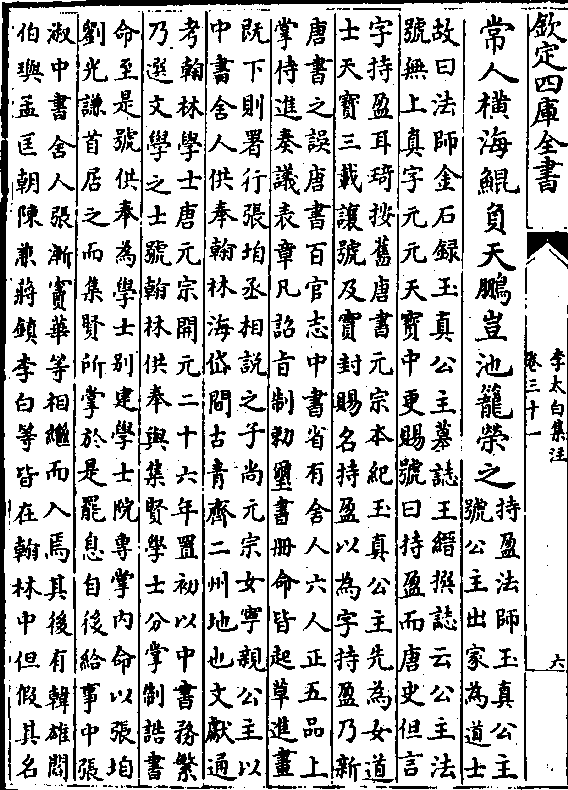 欽定四庫全書
李太白集注
卷三十一
六
常人橫海鯤負天鵬豈池籠榮之
持盈法師玉真公主
號公主出家為道士
故曰法師金石錄玉真公主墓誌王縉撰誌云公主法
號無上真字元元天寶中更賜號曰持盈而唐史但言
字持盈耳琦按舊唐書元宗本紀玉真公主先為女道
士天寶三載讓號及寶封賜名持盈以為字持盈乃新
唐書之誤唐書百官志中書省有舍人六人正五品上
掌侍進奏議表章凡詔旨制勅璽書冊命皆起草進畫
既下則署行張垍丞相說之子尚元宗女寧親公主以
中書舍人供奉翰林海岱間古青齊二州地也文獻通
考翰林學士唐元宗開元二十六年置初以中書務繁
乃選文學之士號翰林供奉與集賢學士分掌制誥書
命至是號供奉為學士別建學士院專掌內命以張垍
劉光謙首居之而集賢所掌於是罷息自後給事中張
淑中書舍人張漸竇華等相繼而入焉其後有韓雄閻
伯璵孟匡朝陳兼蔣鎮李白等皆在翰林中但假其名